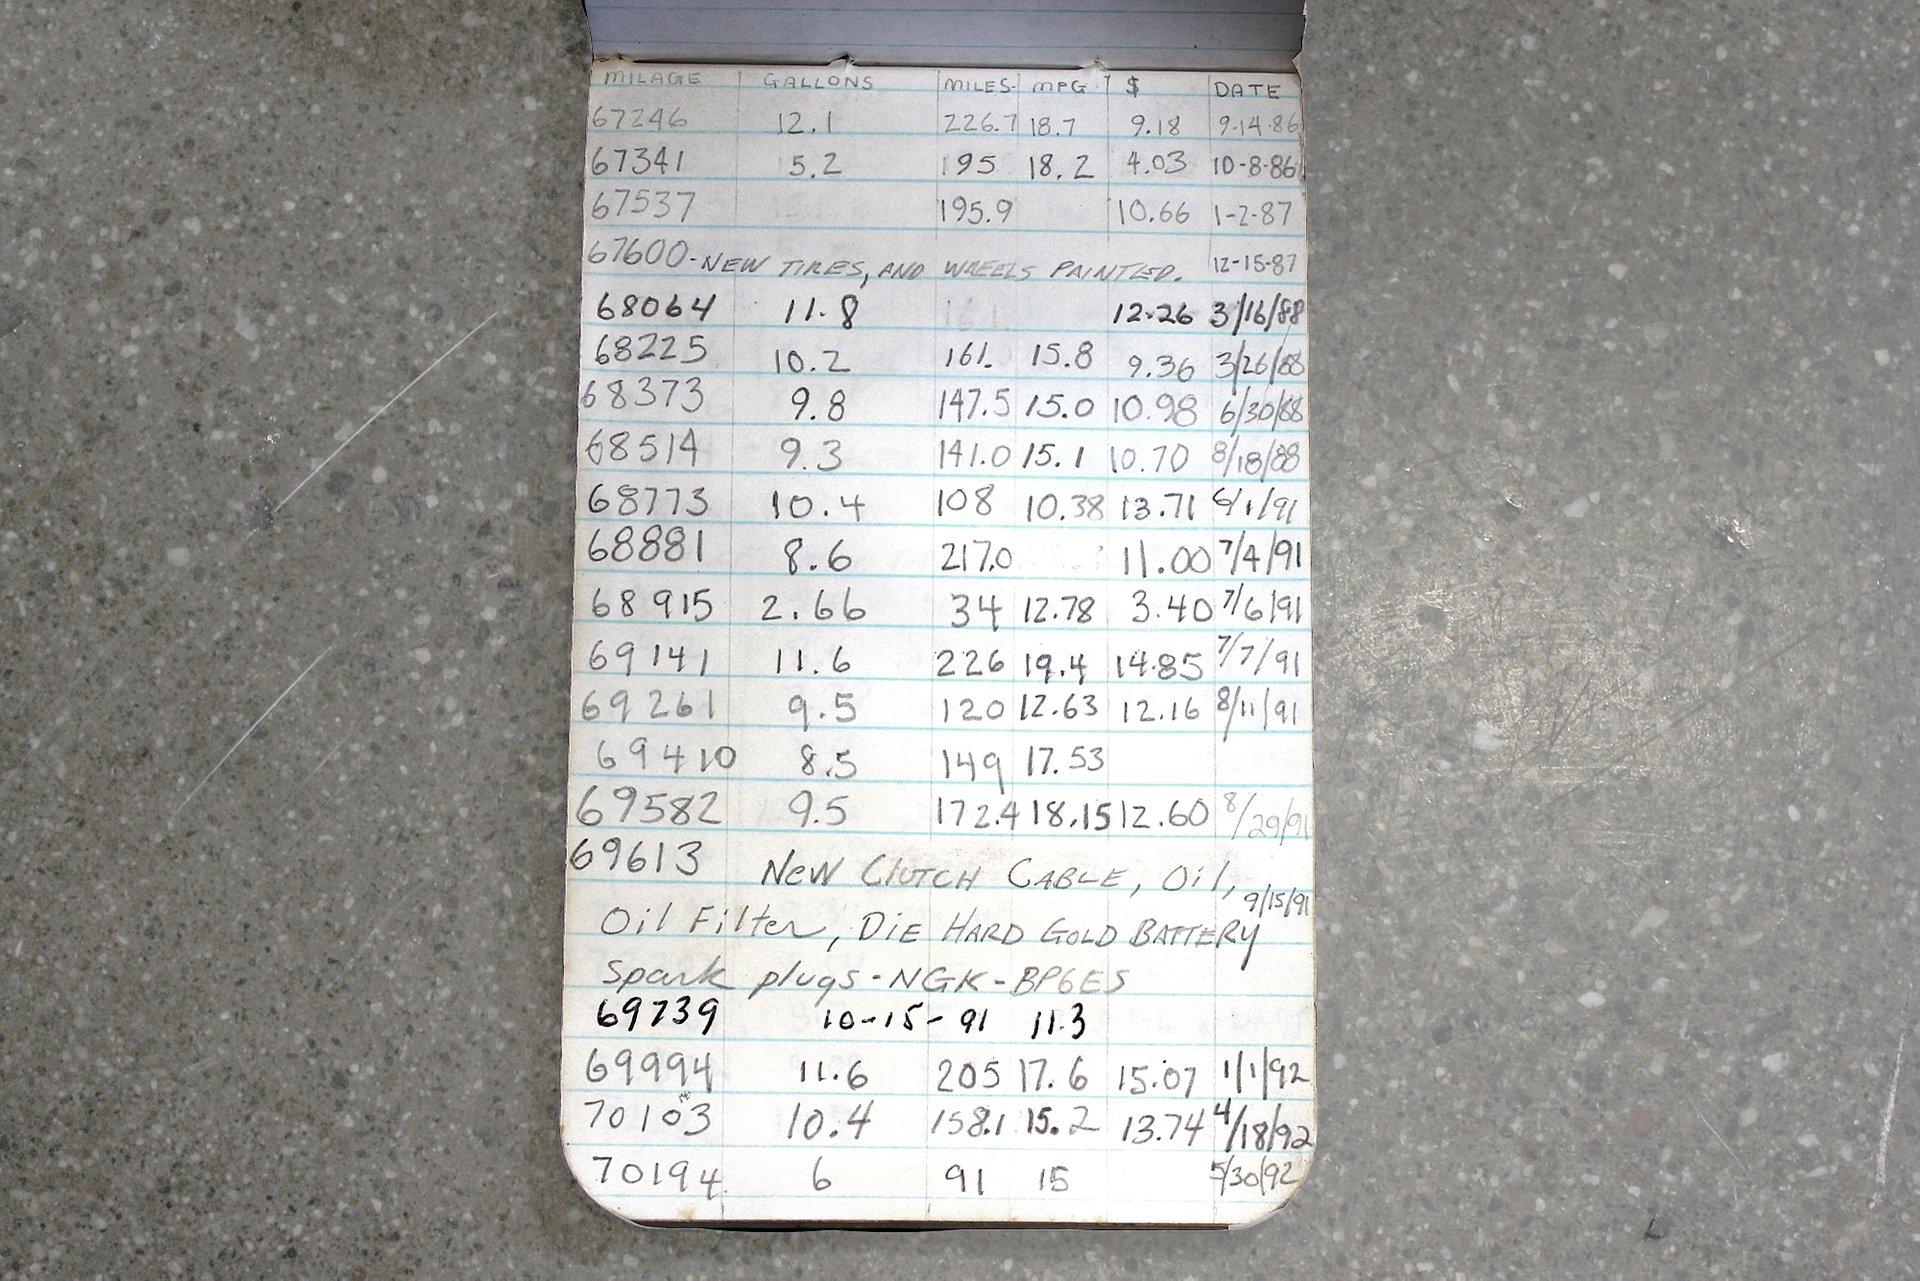 MILAGE GALLONS MILES MPG $ DATE
67246 12.1 226.7 18.7 9.18 9-14-86
67341 5.2 195 18.2 4.03 10-8-86
67537 195.9 10.66 1-2-87
67600-NEW TIRES, AND WHEELS PAINTED. 12-15-87
68064 11.8 12.26 3/16/88
68225 10.2 161. 15.8 9.36 3/26/88
68373 9.8 147.5 15.0 10.98 6/30/88
68514 9.3 141.0 15.1 10.70 8/18/88
68773 10.4 108 10.38 13.71 6/1/91
68881 8.6 217.0 11.00 7/4/91
68915 2.66 34 12.78 3.40 7/6/91
69141 11.6 226 19.4 14.85 7/7/91
69261 9.5 120 12.63 12.16 8/11/91
69410 8.5 149 17.53
69582 9.5 172.4 18.15 12.60 8/29/91
69613 New Clutch Cable, Oil, 9/15/91
Oil Filter, Die Hard Gold Battery
Spark plugs-NGK-BP6ES
69739 10-15-91 11.3
69994 11.6 205 17.6 15.07 1/1/92
70103 10.4 158.1 15.2 13.74 4/18/92
70194 6 91 15 5/30/92